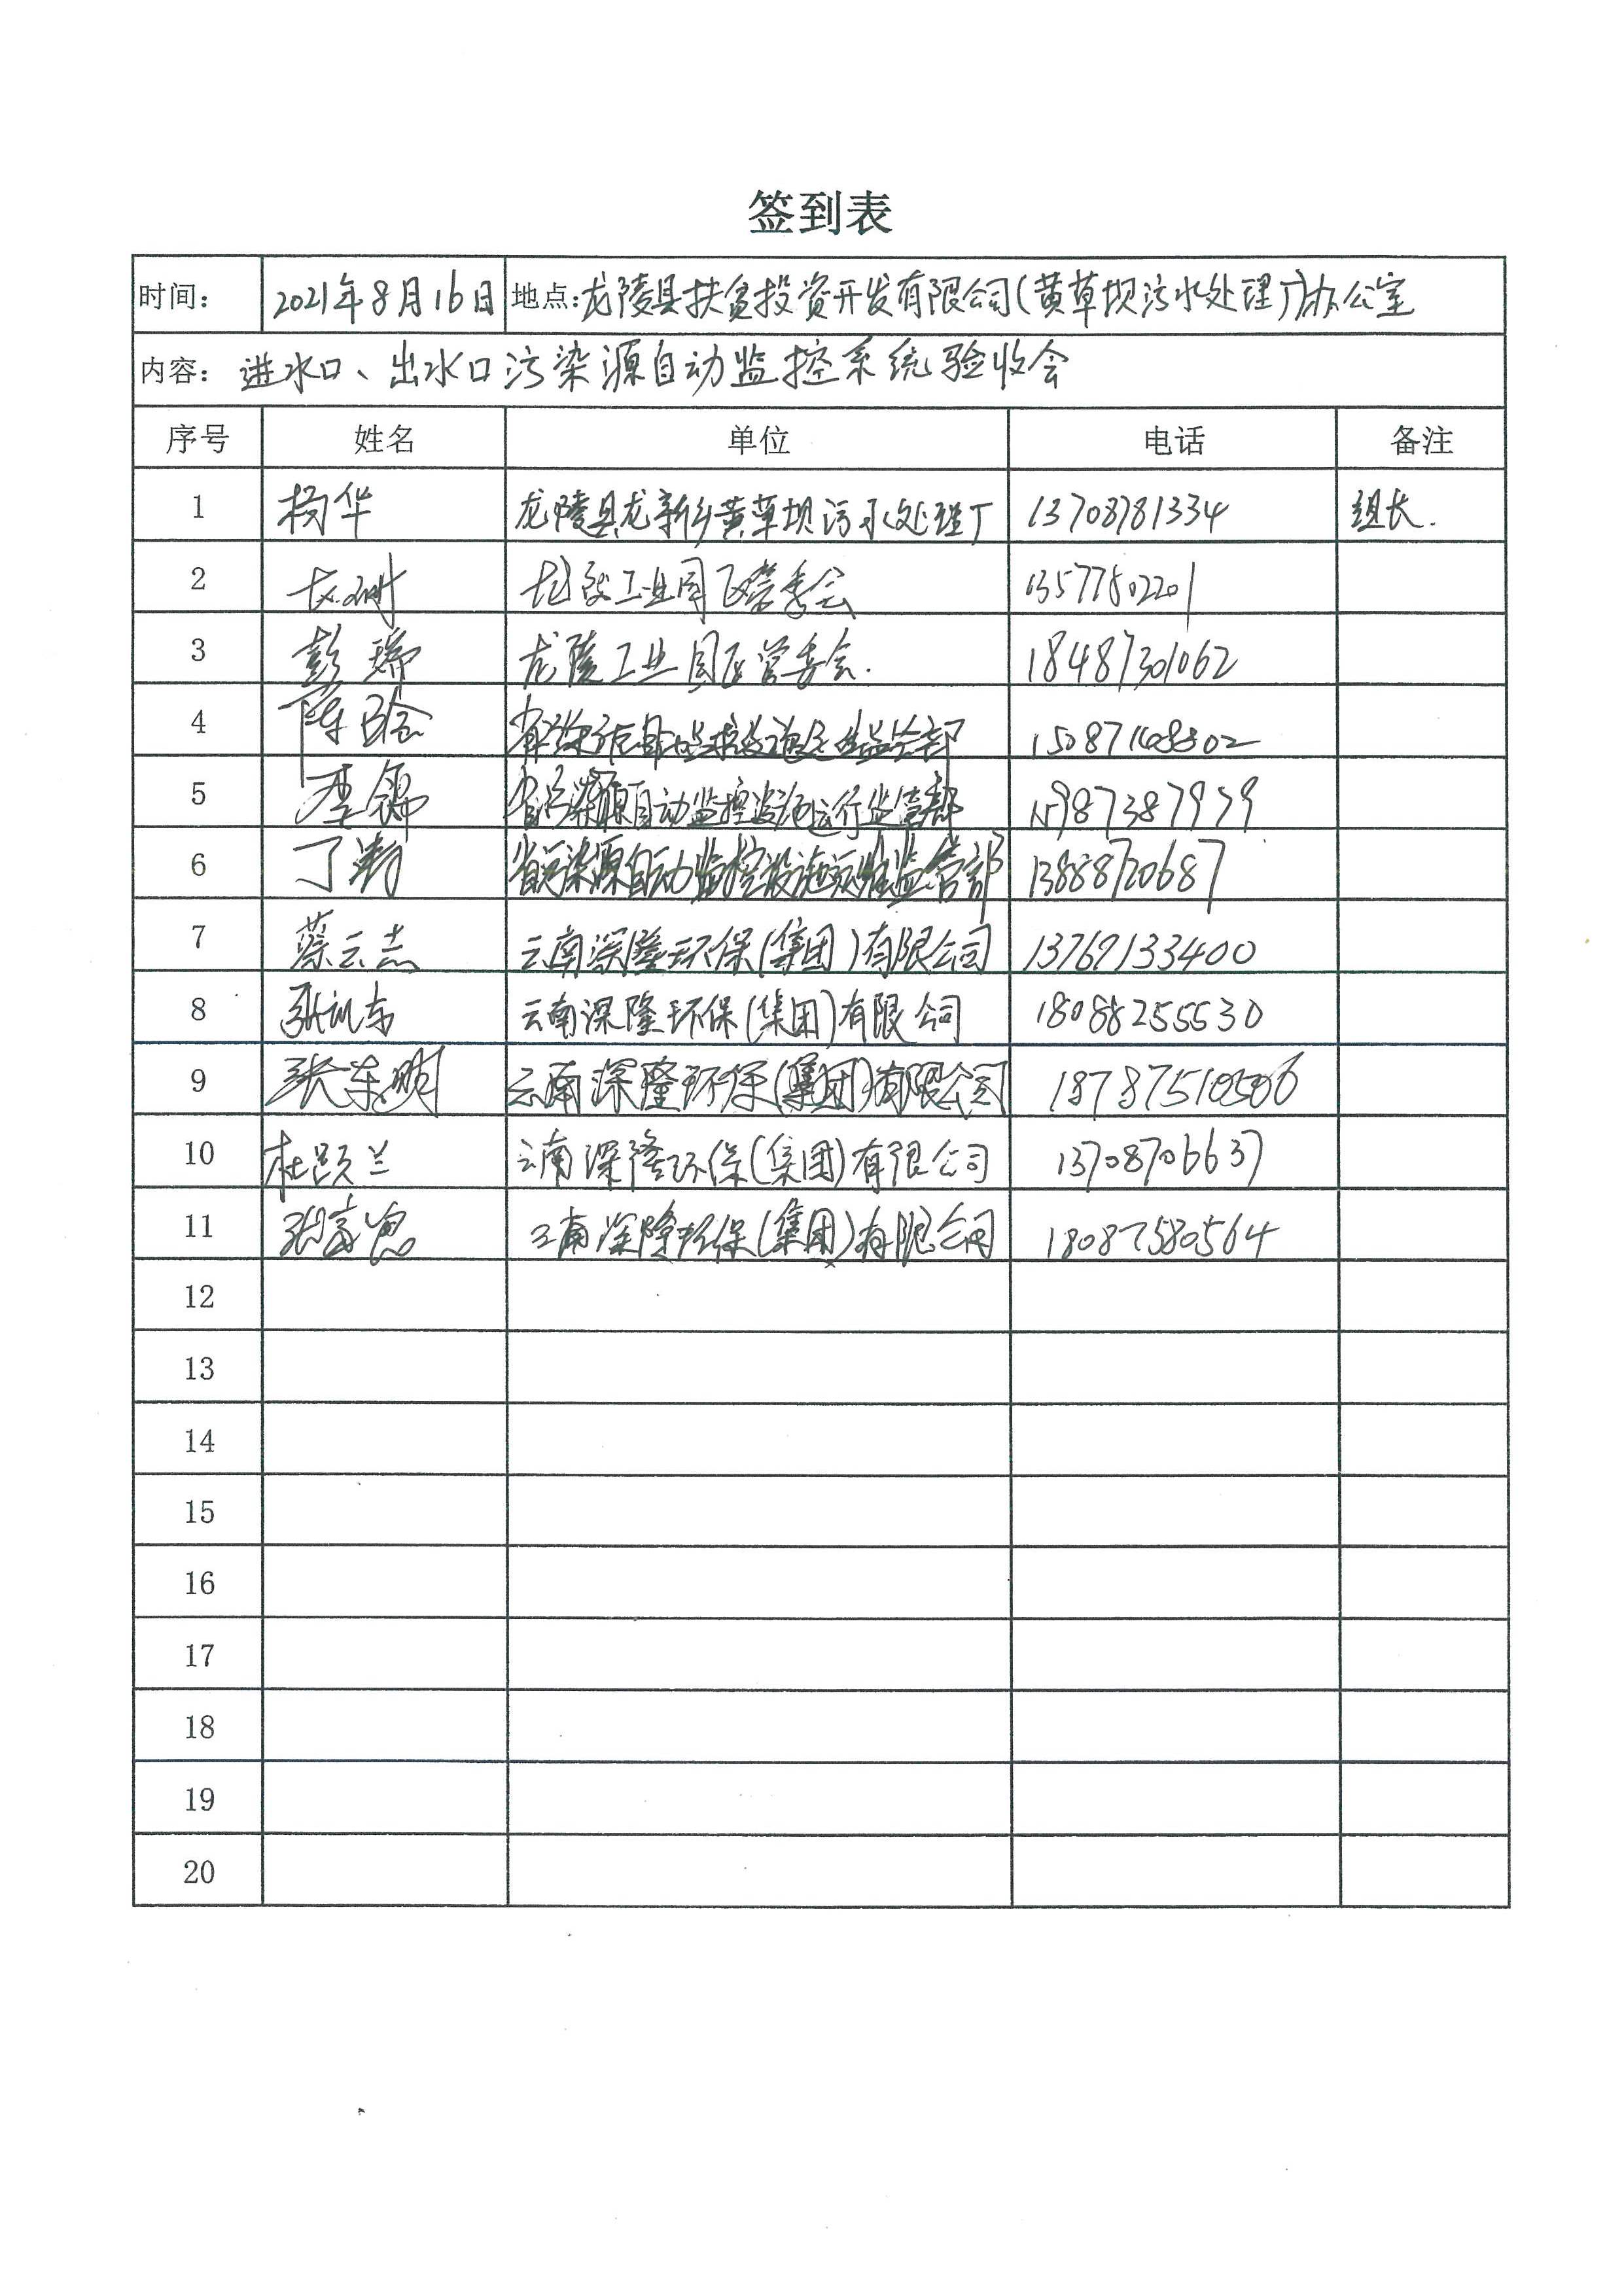 签到表
时间： 2021年8月16日 地点：龙陵县扶贫投资开发有限公司(黄草坝污水处理厂)办公室
内容： 进水口、出水口污染源自动监控系统验收会
序号 姓名 单位 电话 备注
1 杨华 龙陵县龙新乡黄草坝污水处理厂 13708781334 组长.
2 龙陵工业园区管委会 13577802201
3 彭瑞 龙陵工业园区管委会. 18487301062
4 陈晗 省污染源自动监控设施运行监管部 15087108802
5 李锦 省污染源自动监控设施运行监管部 15987387979
6 丁涛 省污染源自动监控设施运行监管部 13888720687
7 蔡云志 云南深隆环保(集团)有限公司 13769133400
8 云南深隆环保(集团)有限公司 18088255530
9 张东明 云南深隆环保(集团)有限公司 18787510506
10 云南深隆环保(集团)有限公司 13708706637
11 云南深隆环保(集团)有限公司 18087580564
12
13
14
15
16
17
18
19
20